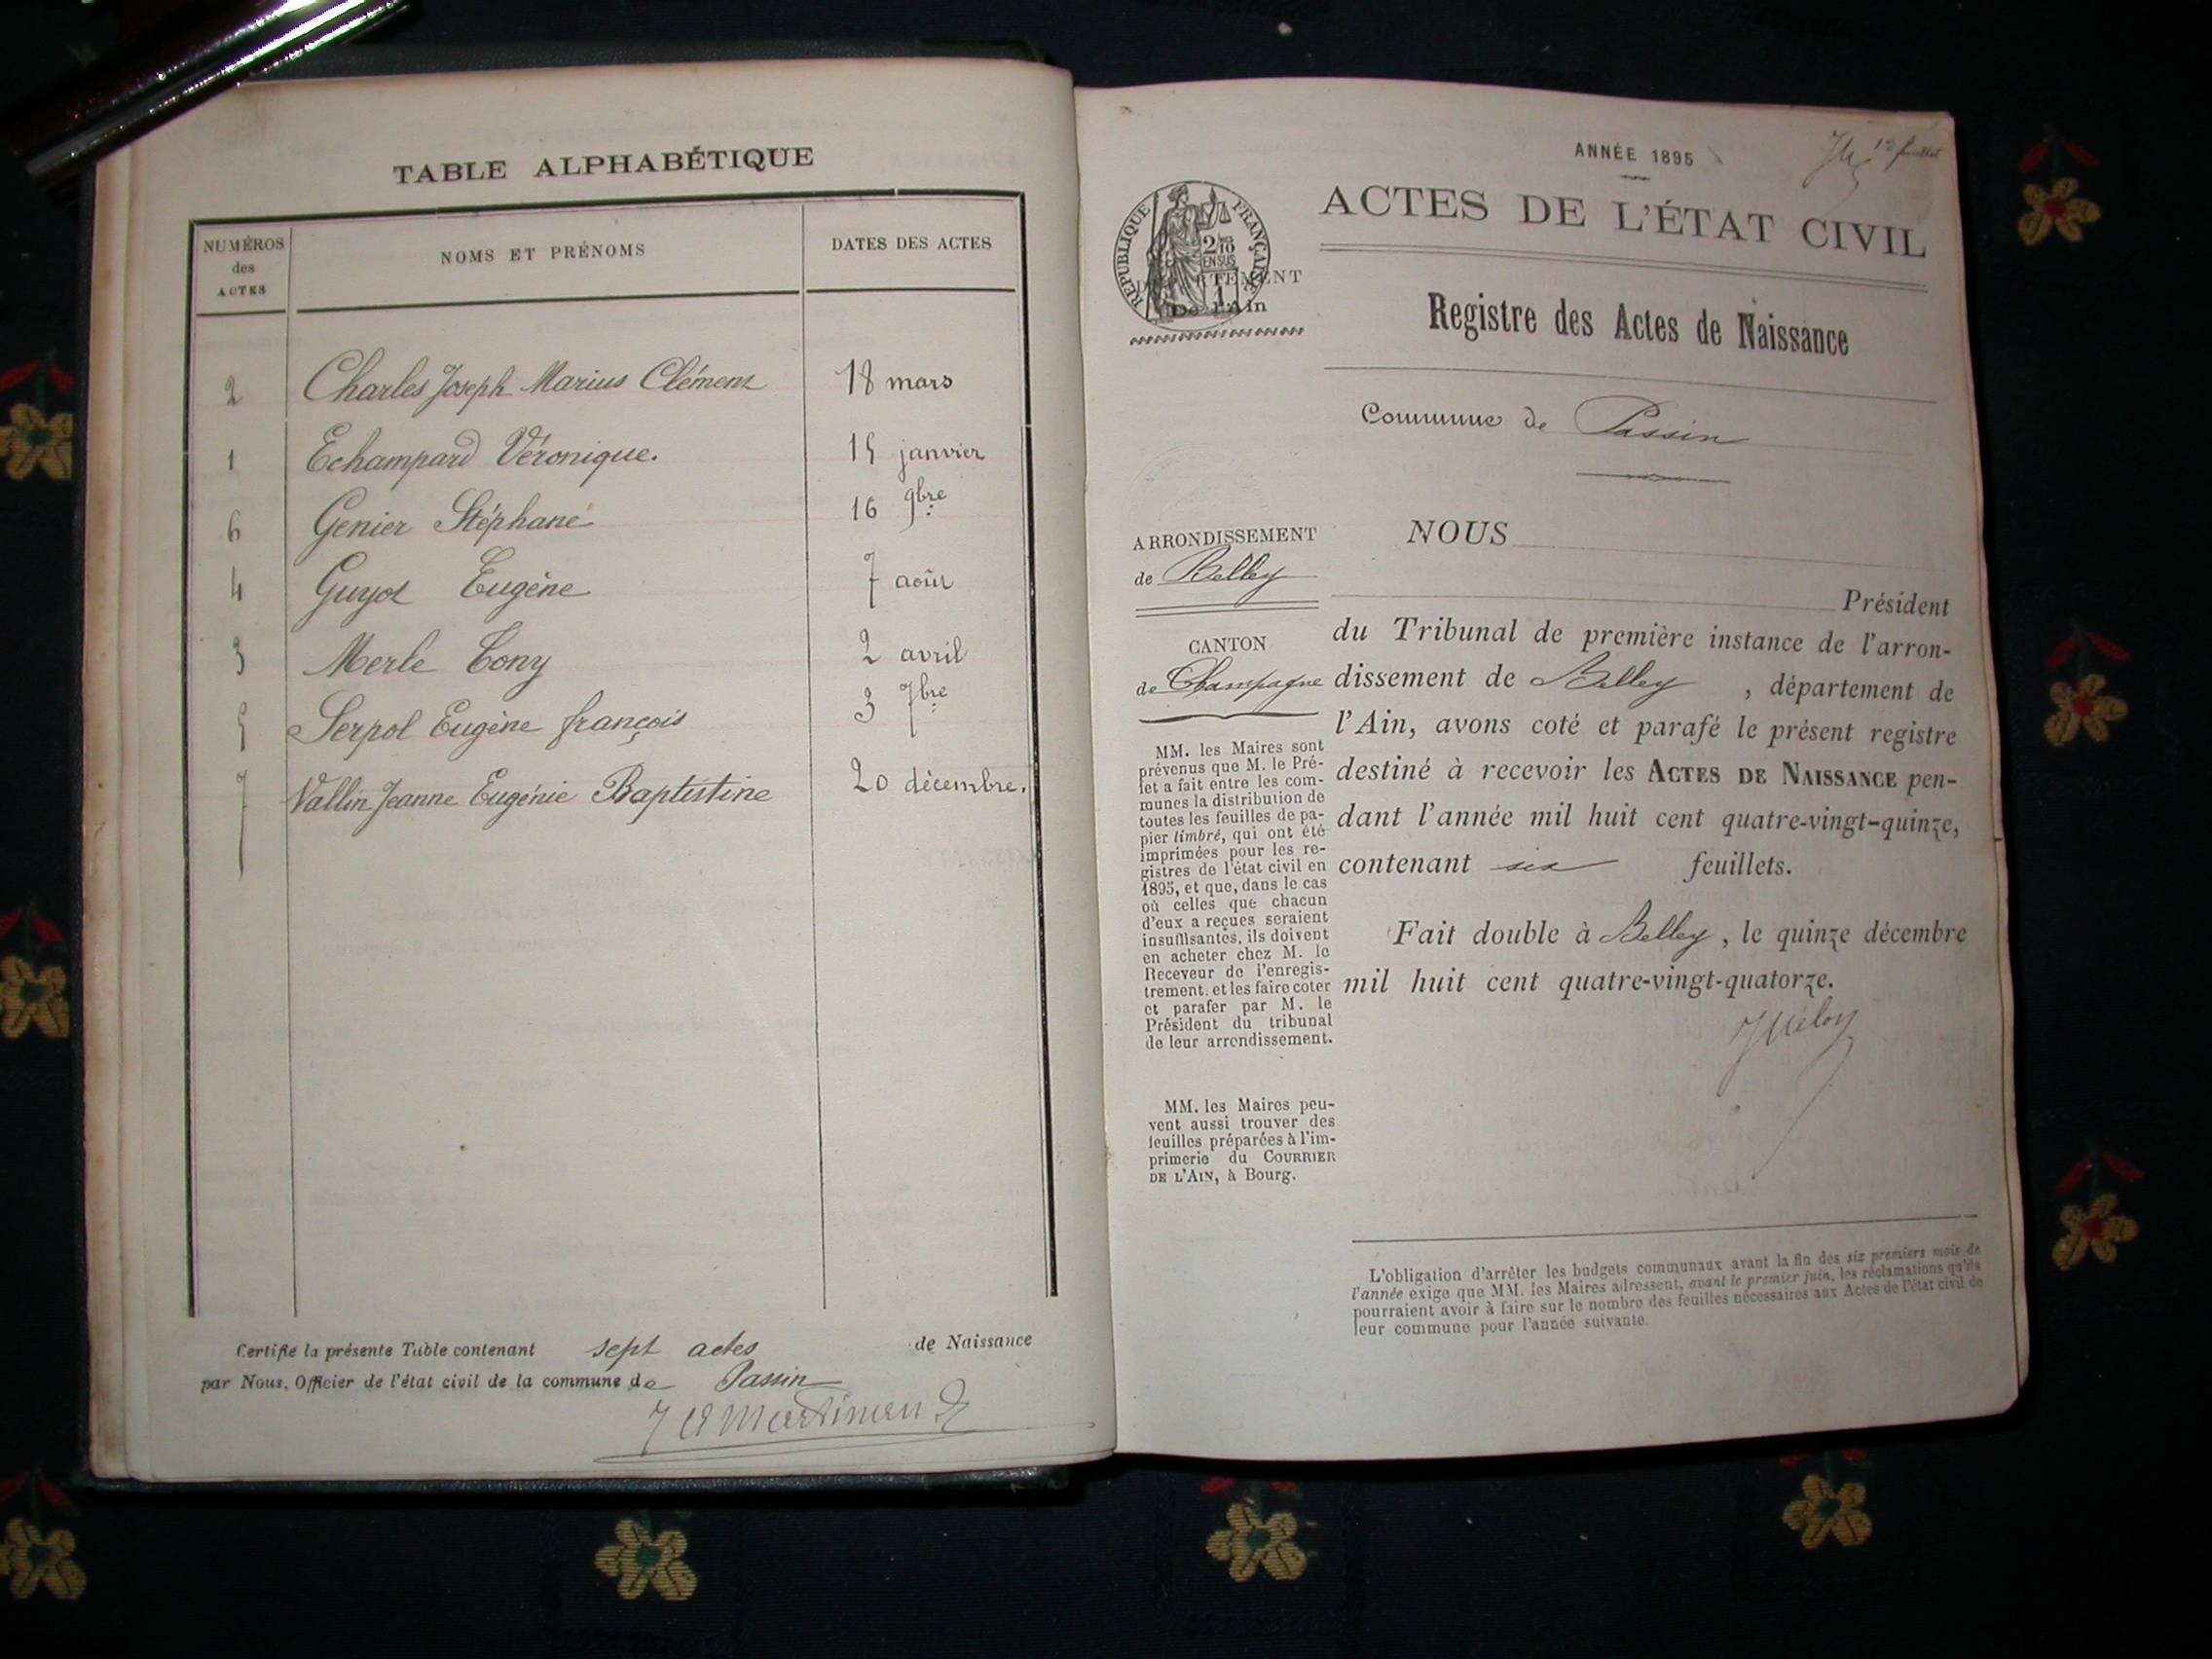 TABLE ALPHABÉTIQUE
NUMÉROS
des
ACTES
NOMS ET PRÉNOMS
DATES DES ACTES
2 Charles Joseph Marius Clément 18 mars
1 Echampard Véronique. 15 janvier
6 Genier Stéphane 16 9bre
4 Guyot Eugène 7 août
3 Merle Tony 2 avril
5 Serpol Eugène françois 3 7bre
7 Vallin Jeanne Eugénie Baptistine 20 décembre.
Certifié la présente Table contenant sept actes de Naissance
par Nous, Officier de l'état civil de la commune de Passin
ANNÉE 1895
ACTES DE L'ÉTAT CIVIL
RÉPUBLIQUE FRANÇAISE
DÉPARTEMENT
De l'Ain
Registre des Actes de Naissance
Commune de Passin
ARRONDISSEMENT
de Belley
CANTON
de Champagne
MM. les Maires sont
prévenus que M. le Pré-
fet a fait entre les com-
munes la distribution de
toutes les feuilles de pa-
pier timbré, qui ont été
imprimées pour les re-
gistres de l'état civil en
1895, et que, dans le cas
où celles que chacun
d'eux a reçues seraient
insuffisantes, ils doivent
en acheter chez M. le
Receveur de l'enregis-
trement, et les faire coter
et parafer par M. le
Président du tribunal
de leur arrondissement.
MM. les Maires peu-
vent aussi trouver des
feuilles préparées à l'im-
primerie du COURRIER
DE L'AIN, à Bourg.
NOUS
Président
du Tribunal de première instance de l'arron-
dissement de Belley , département de
l'Ain, avons coté et parafé le présent registre
destiné à recevoir les ACTES DE NAISSANCE pen-
dant l'année mil huit cent quatre-vingt-quinze,
contenant six feuillets.
Fait double à Belley, le quinze décembre
mil huit cent quatre-vingt-quatorze.
L'obligation d'arrêter les budgets communaux avant la fin des six premiers mois de
l'année exige que MM. les Maires adressent, avant le premier juin, les réclamations qu'ils
pourraient avoir à faire sur le nombre des feuilles nécessaires aux Actes de l'état civil de
leur commune pour l'année suivante.